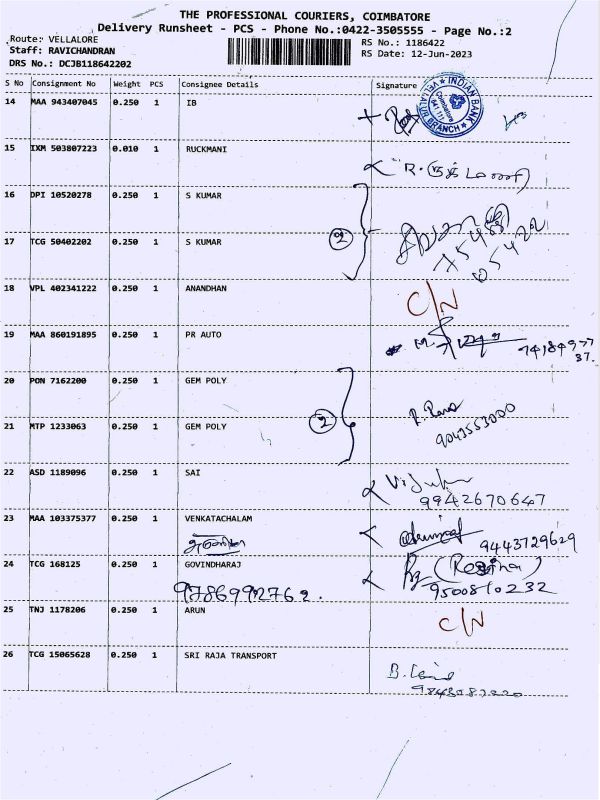 THE PROFESSIONAL COURIERS, COIMBATORE
Delivery Runsheet - PCS - Phone No.:0422-3505555 - Page No.:2
Route: VELLALORE
Staff: RAVICHANDRAN
DRS No.: DCJB118642202
RS No.: 1186422
RS Date: 12-Jun-2023
S No Consignment No Weight PCS Consignee Details Signature
14 MAA 943407045 0.250 1 IB
INDIAN BANK
Coimbatore
641 111
VELLALUR BRANCH
15 IXM 503807223 0.010 1 RUCKMANI
16 DPI 10520278 0.250 1 S KUMAR
2
17 TCG 50402202 0.250 1 S KUMAR
18 VPL 402341222 0.250 1 ANANDHAN C/N
19 MAA 860191895 0.250 1 PR AUTO
20 PON 7162200 0.250 1 GEM POLY
2
21 MTP 1233063 0.250 1 GEM POLY
9043553000
22 ASD 1189096 0.250 1 SAI
9942670647
23 MAA 103375377 0.250 1 VENKATACHALAM
9443729629
24 TCG 168125 0.250 1 GOVINDHARAJ
9786992762. 9500810232
25 TNJ 1178206 0.250 1 ARUN C/N
26 TCG 15065628 0.250 1 SRI RAJA TRANSPORT